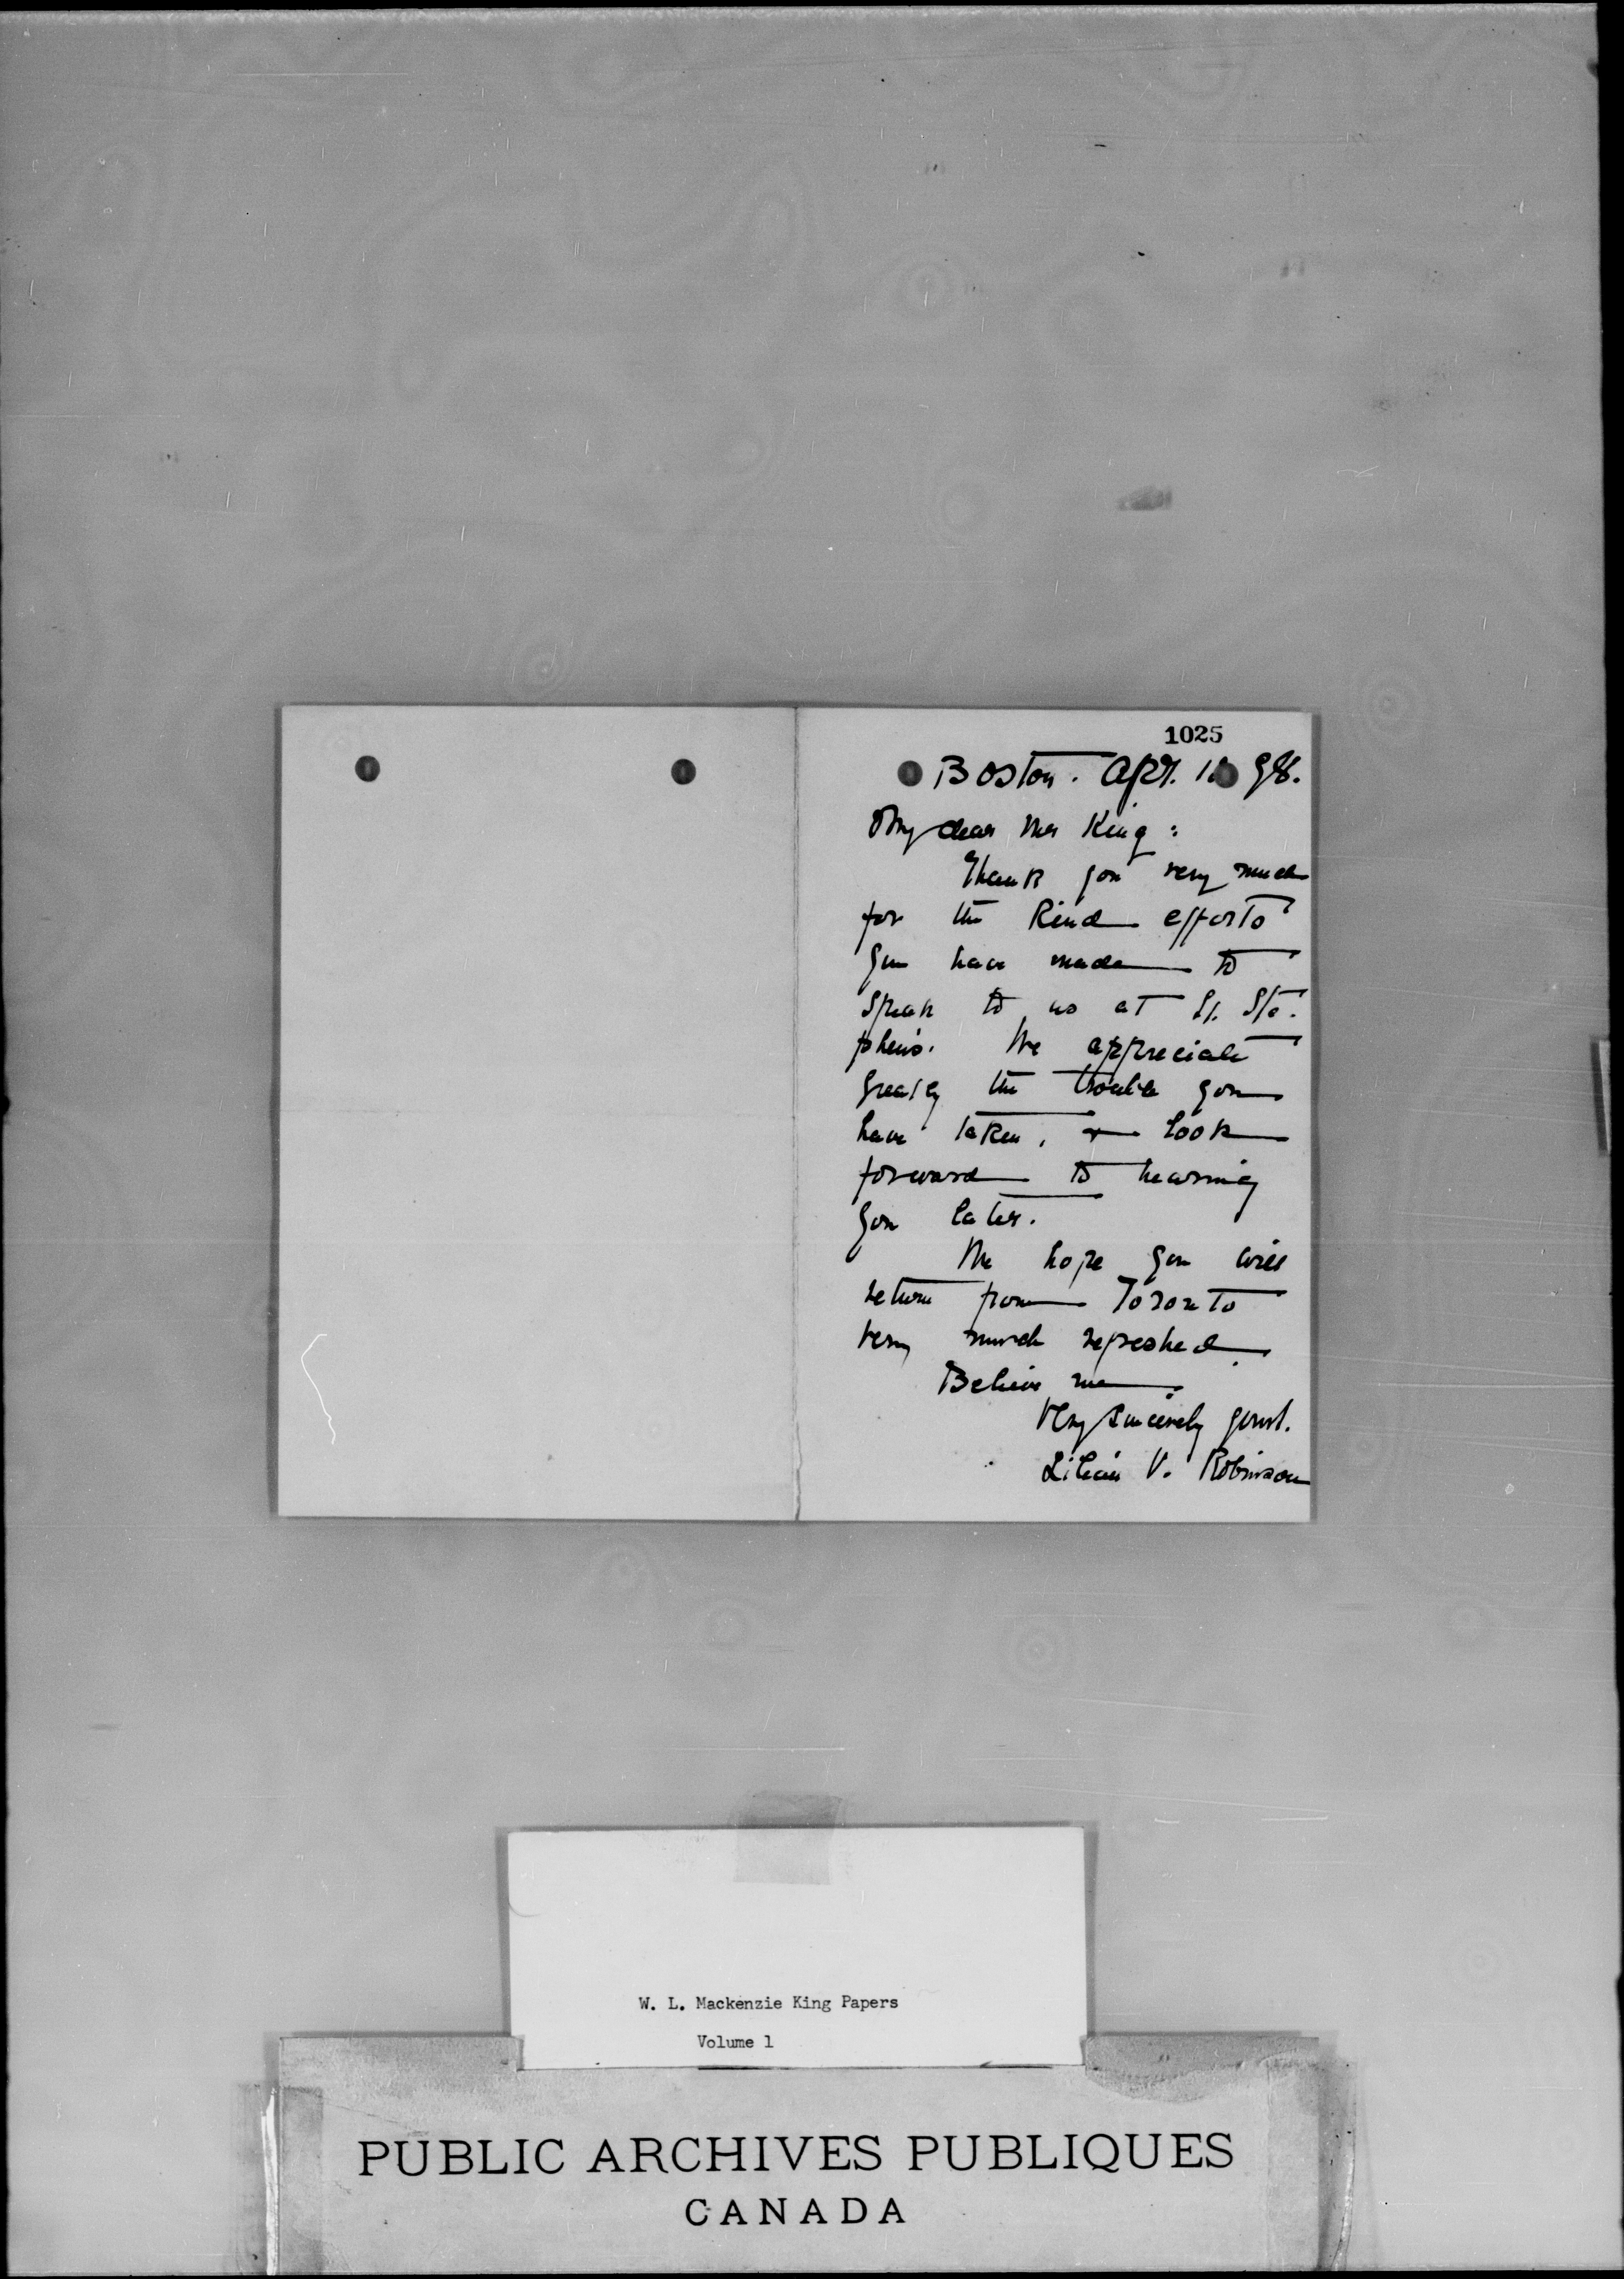 1025
Boston. Apr. 98.
My dear Mr King:
Thank you very much
for the kind efforts
you have made to
speak to us at St. Ste-
phen's. We appreciate
greatly the trouble you
have taken, & look
forward to hearing
you later.
We hope you will
return from Toronto
very much refreshed.
Believe me,
Very sincerely yours.
Lilian V. Robinson
W. L. Mackenzie King Papers
Volume 1
PUBLIC ARCHIVES PUBLIQUES
CANADA